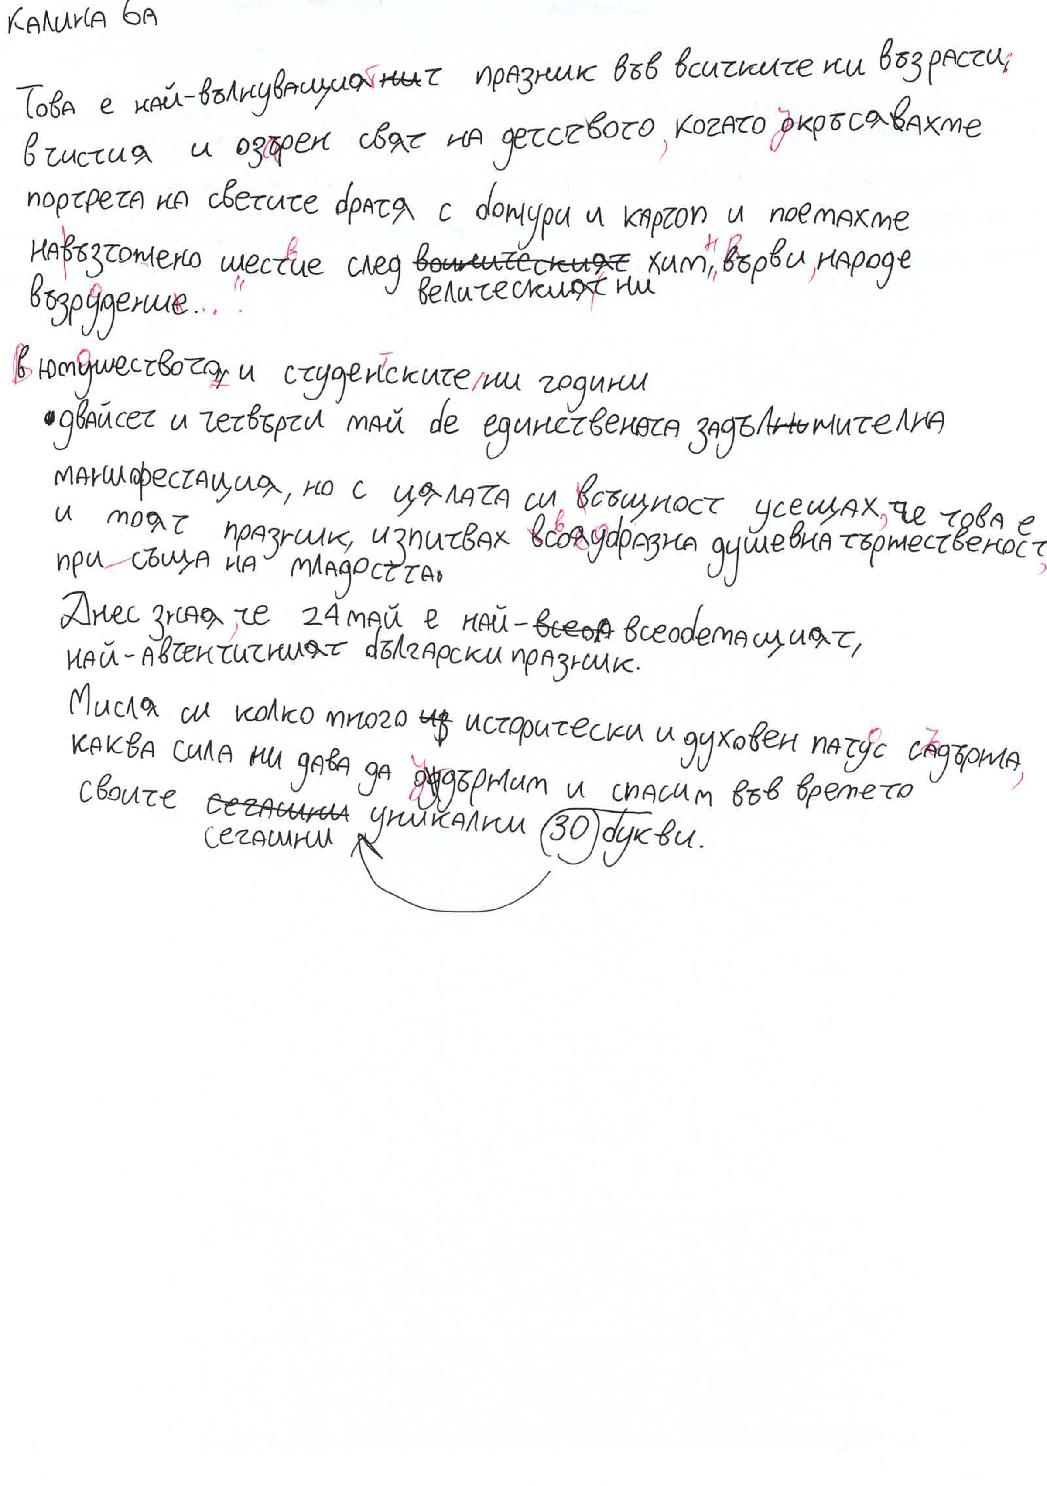 Калина 6А
Това е най-вълнуващият празник във всичките ни възрасти;
в чистия и озърен свят на детството, когато укръсявахме
портрета на светите братя с божури и картоп и поемахме
навъзтожено шествие след химн, „Върви, народе
възрудение..."
величесkият ни
в юмушеството, и студентските ни години
двайсет и четвърти май бе единствената задължителна
манифестация, но с цялата си всъщност усещах, че това е
и моят празник, изпитвах всоеудбразна душевна тържественост,
при съща на младостта.
Днес зная, че 24 май е най- всеобемащият,
най-автентичният български празник.
Мисля си колко много исторически и духовен патус съдържа,
каква сила ни дава да удържим и спасим във времето
своите уникални 30 букви.
сегашни